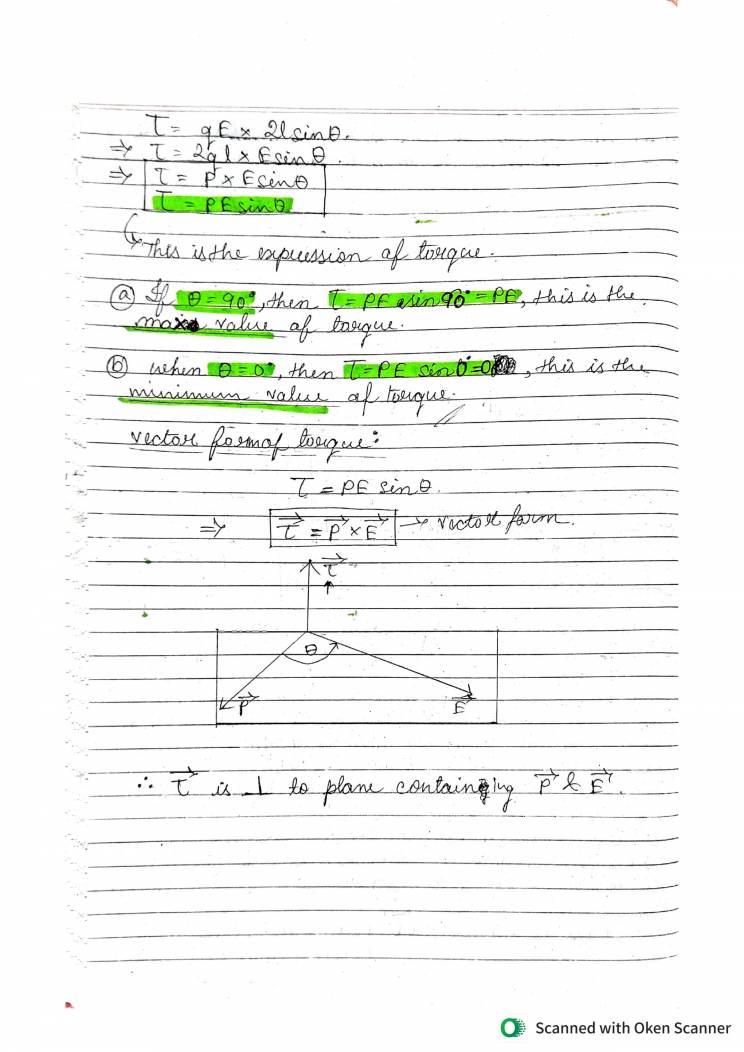 τ = qE × 2l sinθ.
⇒ τ = 2ql × E sinθ.
⇒ τ = P × E sinθ
τ = PE sinθ
↳ This is the expression of torque.
(a) If θ = 90°, then τ = PE sin 90° = PE, this is the
max value of torque.
(b) when θ = 0°, then τ = PE sin 0° = 0, this is the
minimum value of torque.
vector form of torque:
τ = PE sinθ.
⇒ τ⃗ = P⃗ × E⃗ → vector form.
τ⃗
θ
P⃗
E⃗
∴ τ⃗ is ⊥ to plane containing P⃗ & E⃗.
Scanned with Oken Scanner